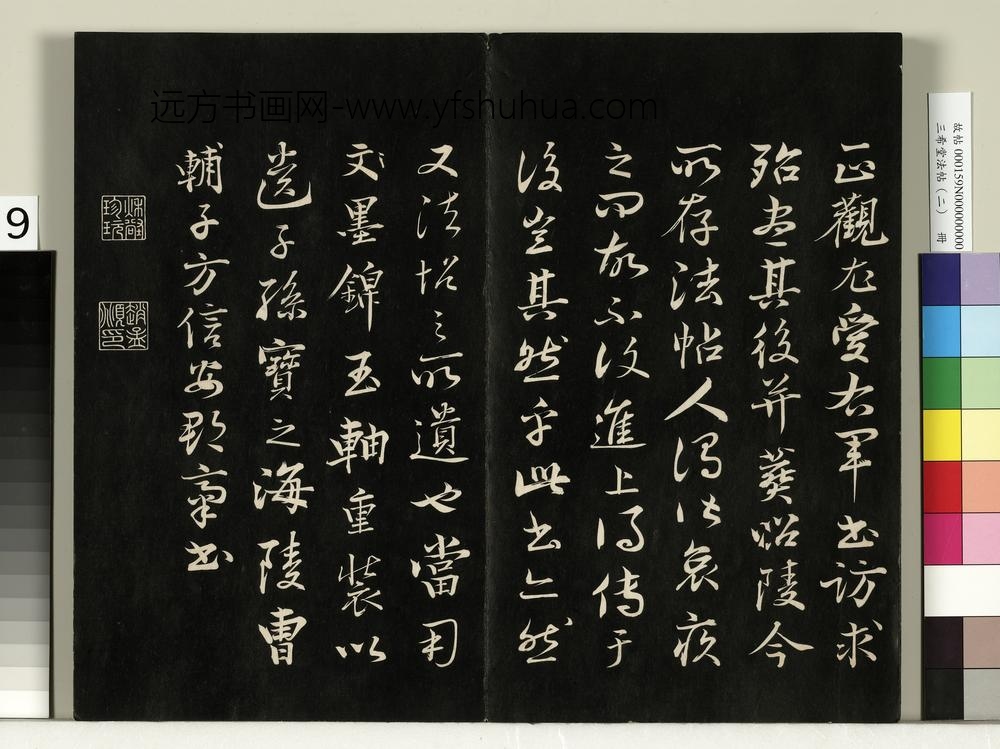 远方书画网-www.yfshuhua.com
正觀尤愛右軍書訪求
殆盡其後并葬昭陵今
所存法帖人哀疾
之問故不進上得傳于
後豈其然乎此書亦然
又法塔之所遺也當用
文墨錦玉軸重裝以
遺子孫寶之海陵曹
輔子方信安郡齋書
珍玩
趙孟頫印
故帖 000159N000000000
三希堂法帖（二） 冊
9